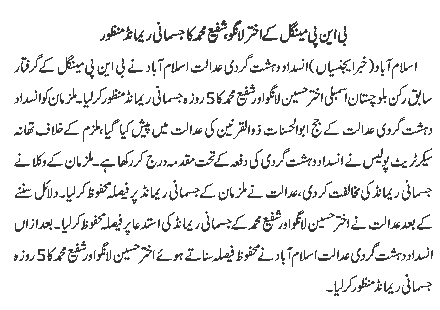 بی این پی مینگل کے اختر لانگو، شفیع محمد کا جسمانی ریمانڈ منظور
اسلام آباد (خبر ایجنسیاں) انسداد دہشت گردی عدالت اسلام آباد نے بی این پی مینگل کے گرفتار
سابق رکن بلوچستان اسمبلی اختر حسین لانگو اور شفیع محمد کا 5 روزہ جسمانی ریمانڈ منظور کر لیا۔ ملزمان کو انسداد
دہشت گردی عدالت کے جج ابوالحسنات ذوالقرنین کی عدالت میں پیش کیا گیا، ملزم کے خلاف تھانہ
سیکرٹریٹ پولیس نے انسداد دہشت گردی کی دفعہ کے تحت مقدمہ درج کر رکھا ہے۔ ملزمان کے وکلا نے
جسمانی ریمانڈ کی مخالفت کر دی، عدالت نے ملزمان کے جسمانی ریمانڈ پر فیصلہ محفوظ کر لیا۔ دلائل سننے
کے بعد عدالت نے اختر حسین لانگو اور شفیع محمد کے جسمانی ریمانڈ کی استدعا پر فیصلہ محفوظ کر لیا۔ بعد ازاں
انسداد دہشت گردی عدالت اسلام آباد نے محفوظ فیصلہ سناتے ہوئے اختر حسین لانگو اور شفیع محمد کا 5 روزہ
جسمانی ریمانڈ منظور کر لیا۔